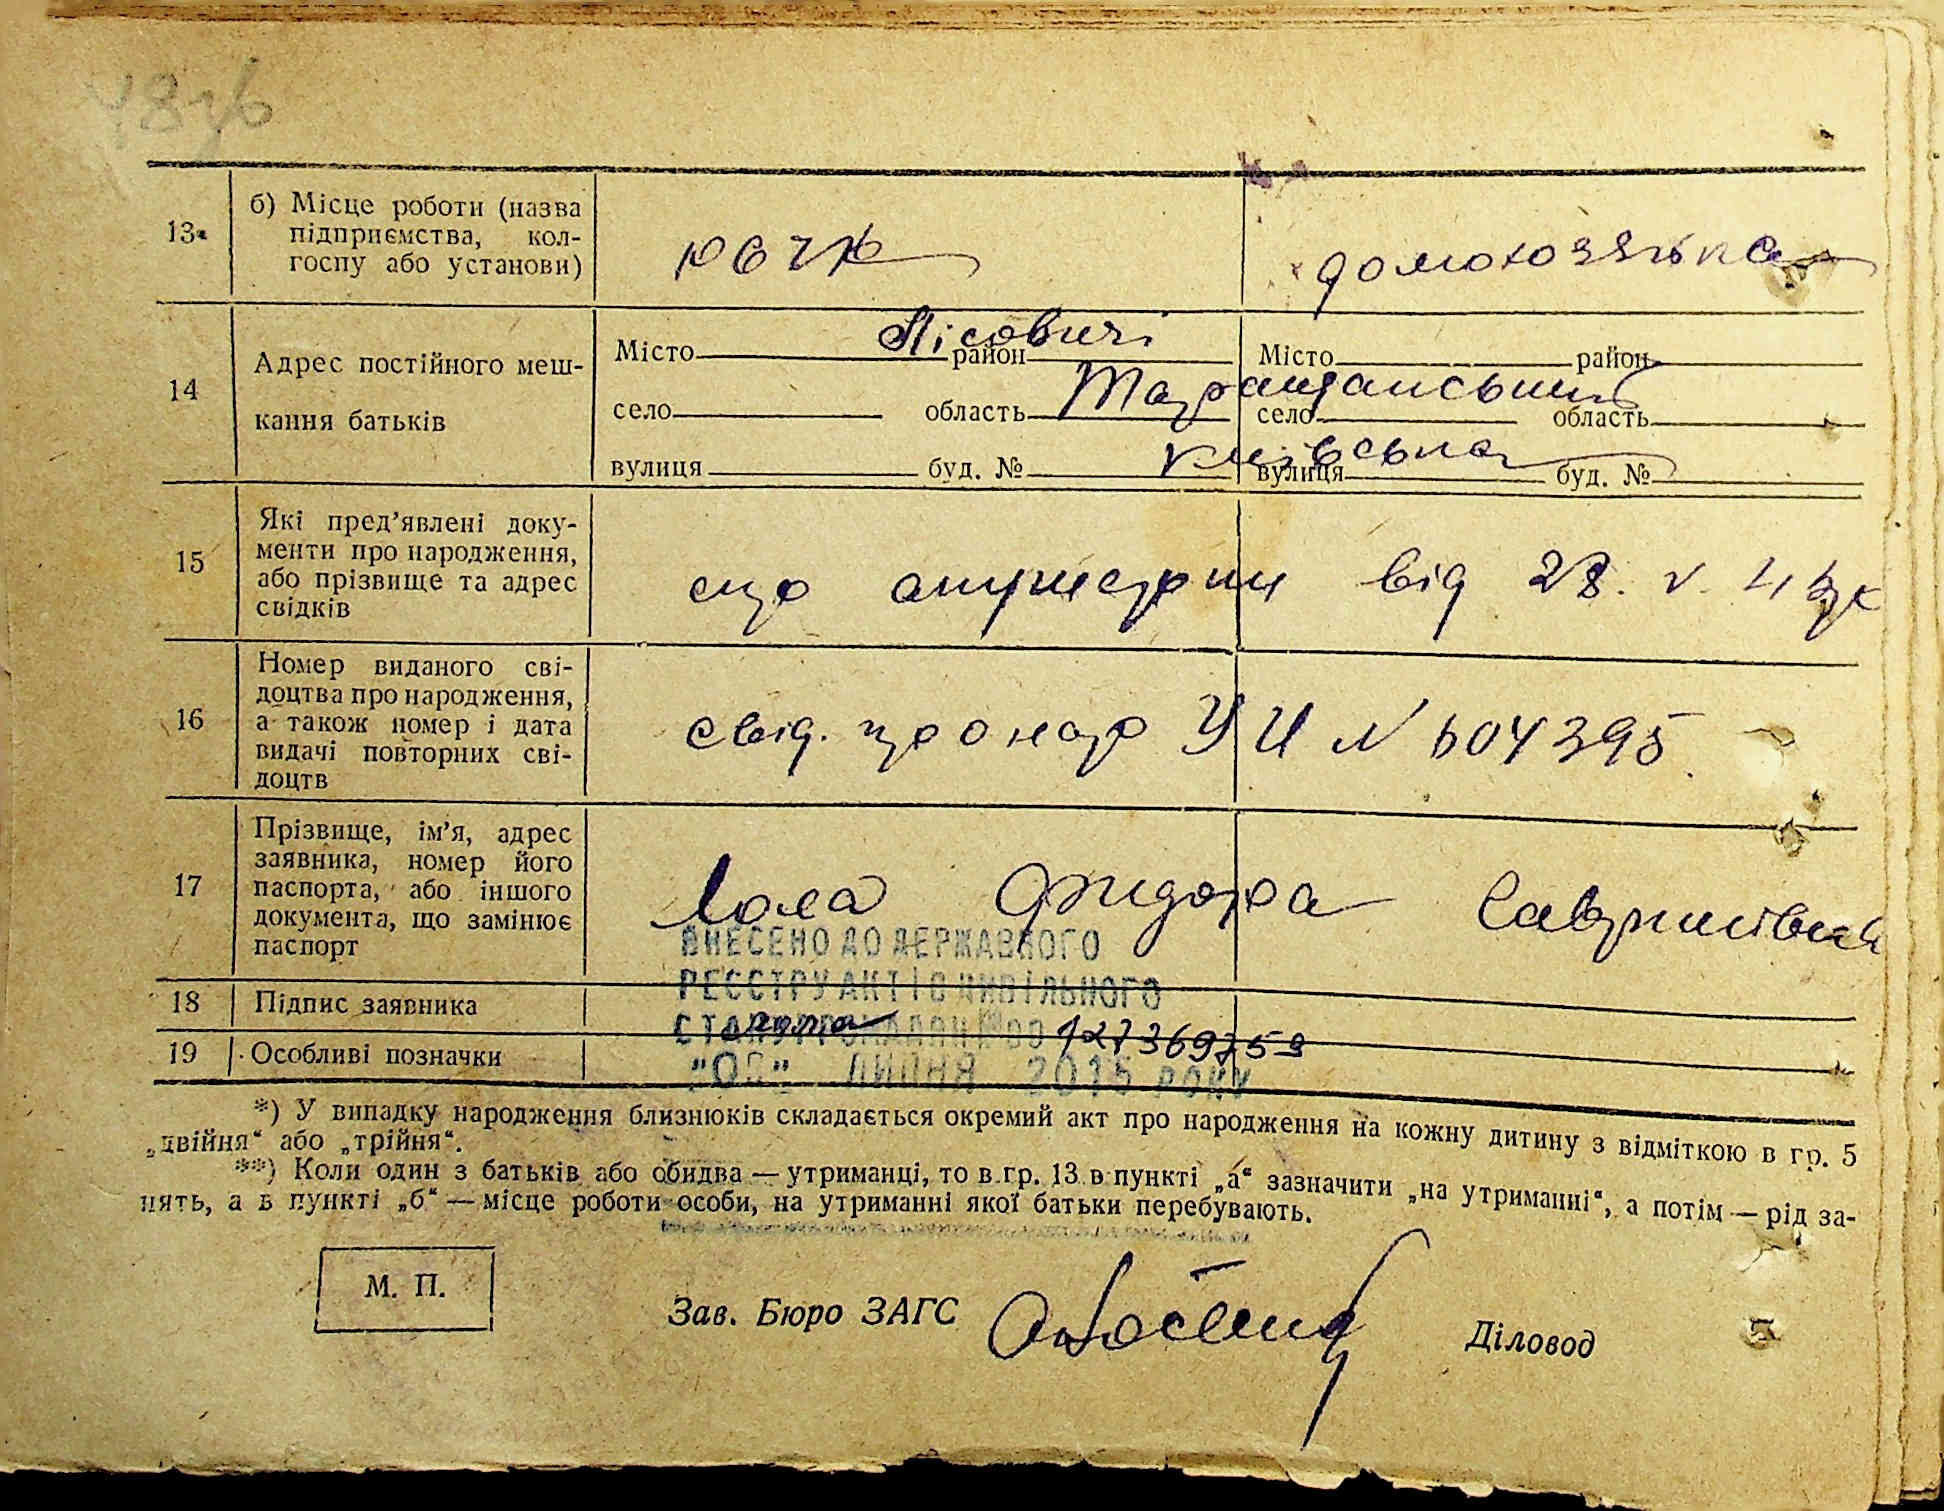 48зв
13
б) Місце роботи (назва
підприємства, кол-
госпу або установи)
домохозяька
14
Адрес постійного меш-
кання батьків
Лісовичі
Місто район Місто район
Таращанський
село область село область
Київська
вулиця буд. № вулиця буд. №
15
Які пред’явлені доку-
менти про народження,
або прізвище та адрес
свідків
від 28. V. 41
16
Номер виданого сві-
доцтва про народження,
а також номер і дата
видачі повторних сві-
доцтв
свід. про нар УИ N 604395
17
Прізвище, ім’я, адрес
заявника, номер його
паспорта, або іншого
документа, що замінює
паспорт
ВНЕСЕНО ДО ДЕРЖАВНОГО
РЕЄСТРУ АКТІВ ЦИВІЛЬНОГО
18 Підпис заявника
СТАНУ ГРОМАДЯН №00 127369759
19 Особливі позначки
ЛИПНЯ 2015 РОКУ
*) У випадку народження близнюків складається окремий акт про народження на кожну дитину з відміткою в гр. 5
„двійня“ або „трійня“.
**) Коли один з батьків або обидва — утриманці, то в гр. 13 в пункті „а“ зазначити „на утриманні“, а потім — рід за-
нять, а в пункті „б“ — місце роботи особи, на утриманні якої батьки перебувають.
М. П.
Зав. Бюро ЗАГС
Діловод